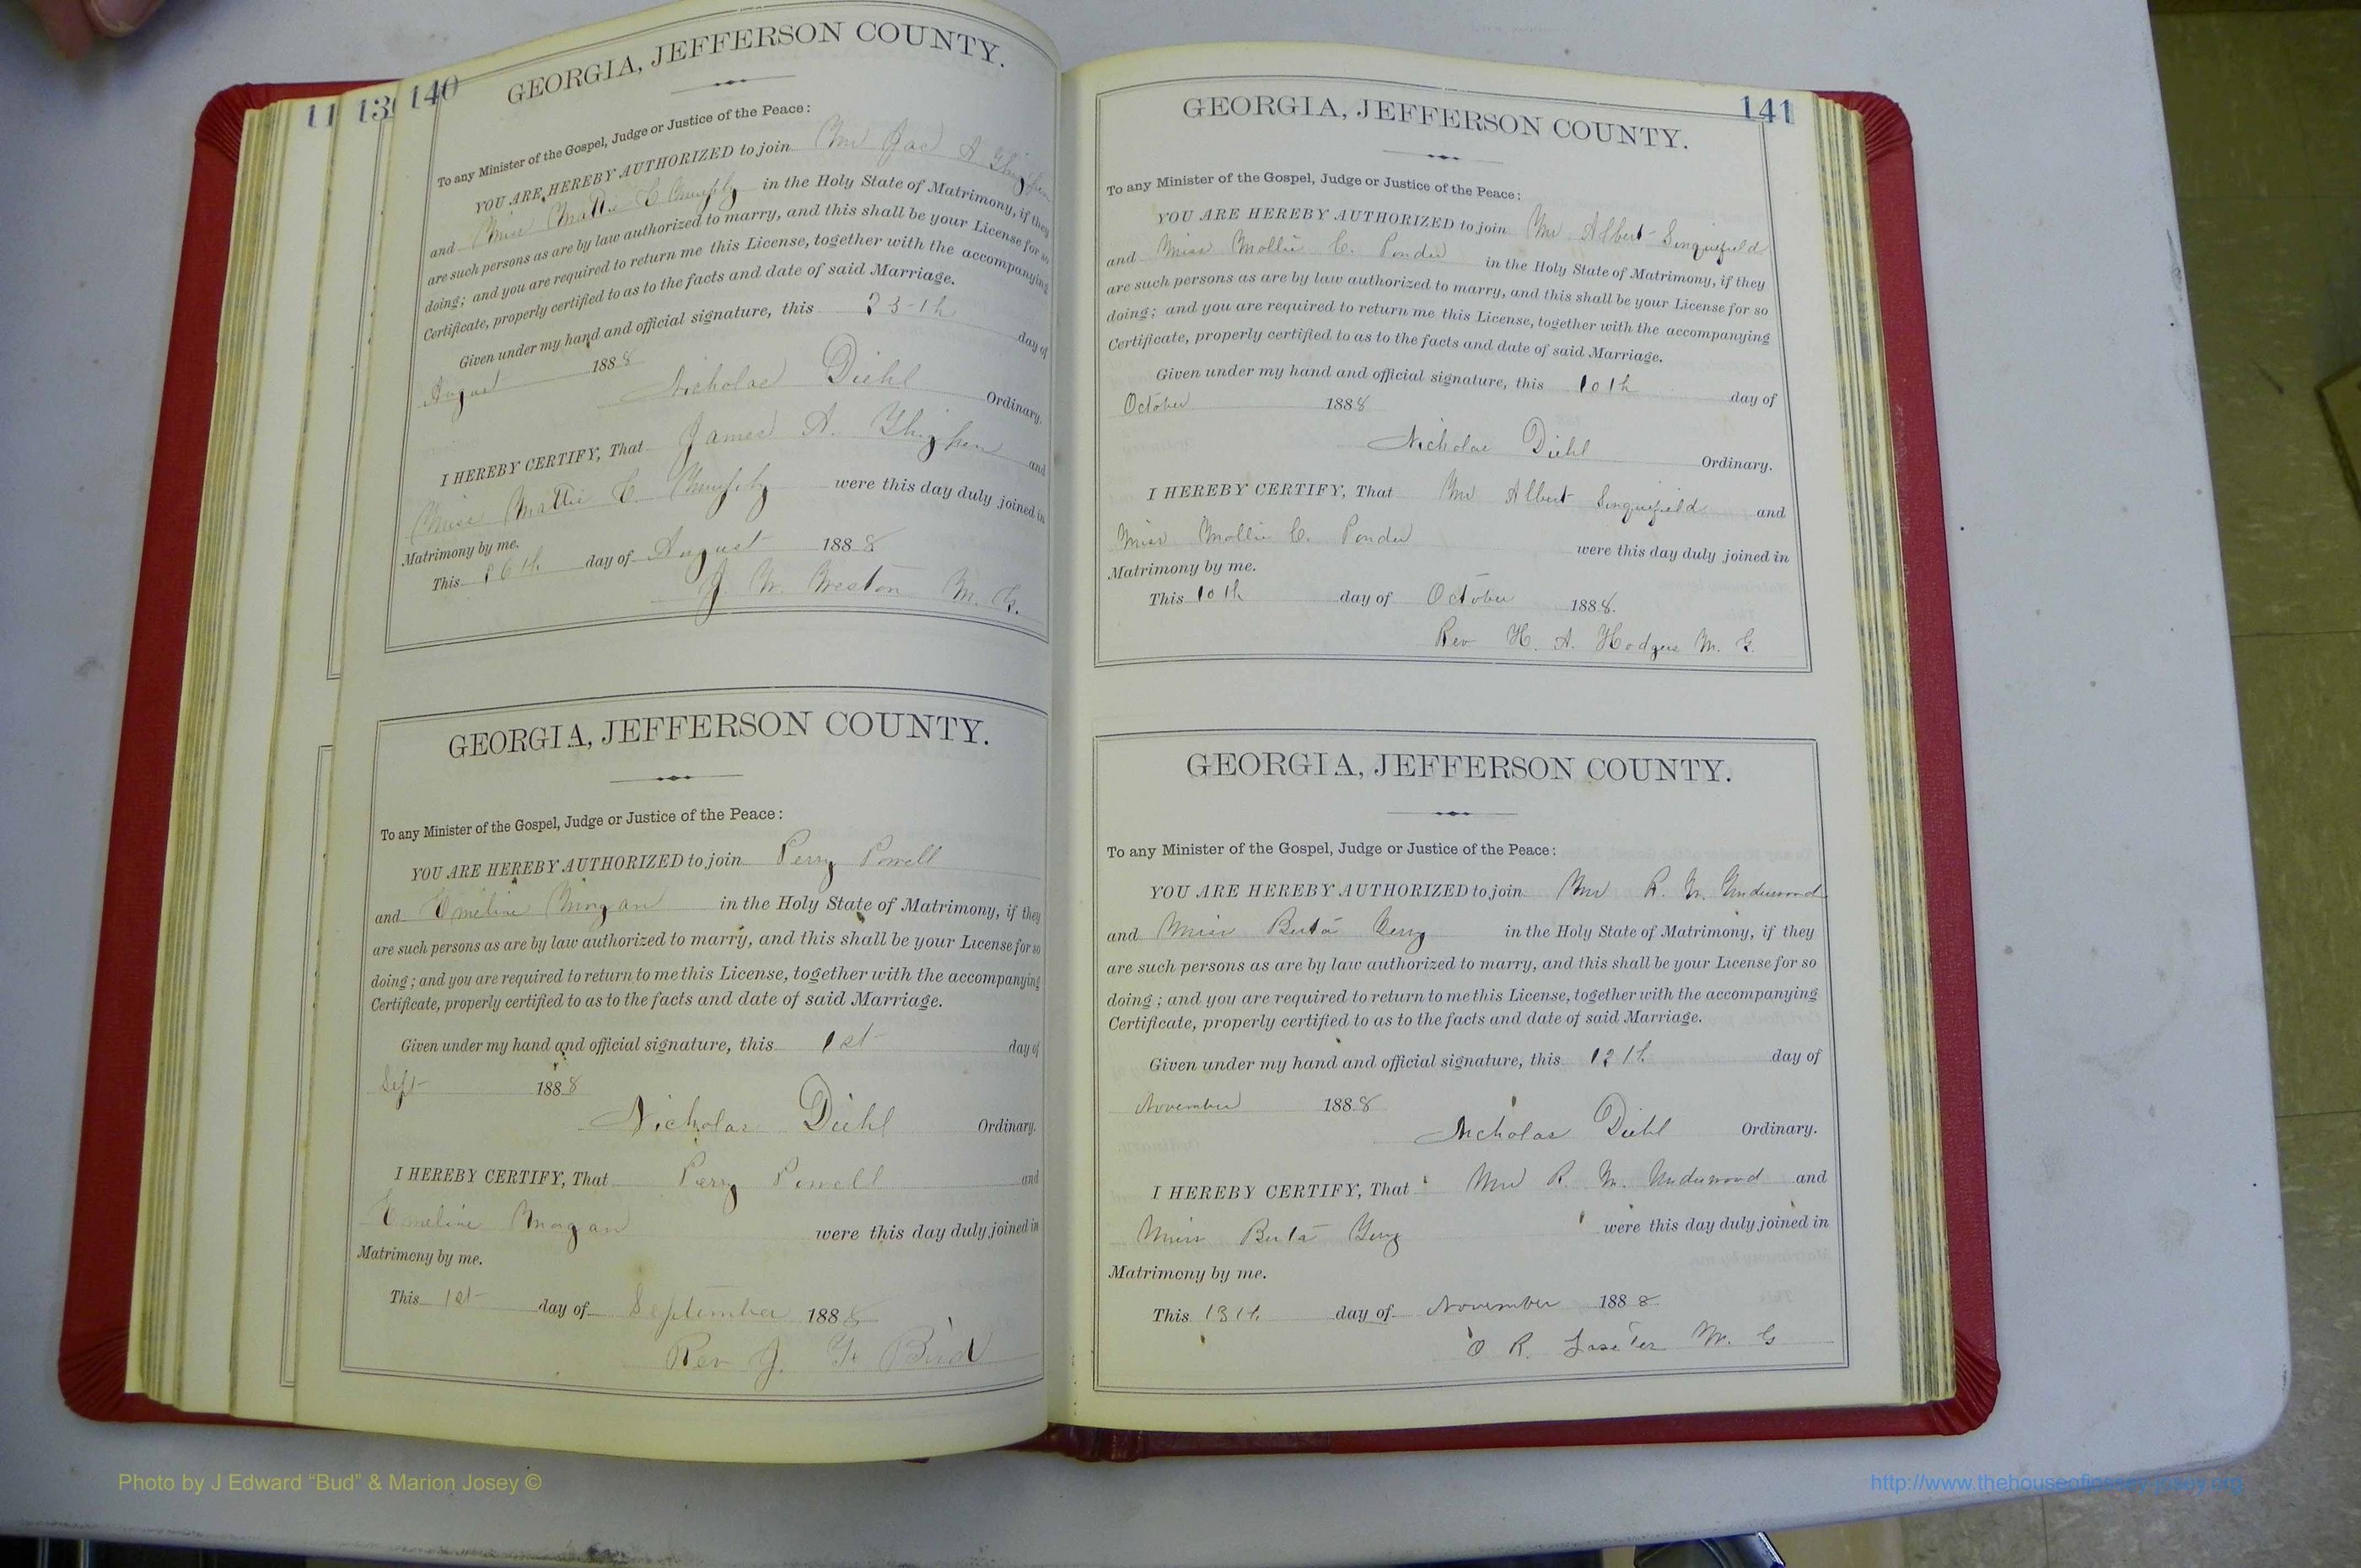 11 13 140
GEORGIA, JEFFERSON COUNTY.
To any Minister of the Gospel, Judge or Justice of the Peace:
YOU ARE HEREBY AUTHORIZED to join Mr Jas A
and Miss Mattie C in the Holy State of Matrimony, if they
are such persons as are by law authorized to marry, and this shall be your License for so
doing; and you are required to return me this License, together with the accompanying
Certificate, properly certified to as to the facts and date of said Marriage.
Given under my hand and official signature, this day of
August 1888
Nicholas Diehl Ordinary.
I HEREBY CERTIFY, That James A. and
Miss Mattie C were this day duly joined in
Matrimony by me.
This day of August 1888
J. W. M. G.
GEORGIA, JEFFERSON COUNTY.
To any Minister of the Gospel, Judge or Justice of the Peace:
YOU ARE HEREBY AUTHORIZED to join Perry Powell
and Emeline Morgan in the Holy State of Matrimony, if they
are such persons as are by law authorized to marry, and this shall be your License for so
doing; and you are required to return to me this License, together with the accompanying
Certificate, properly certified to as to the facts and date of said Marriage.
Given under my hand and official signature, this 1st day of
Sept 1888
Nicholas Diehl Ordinary.
I HEREBY CERTIFY, That Perry Powell and
Emeline Morgan were this day duly joined in
Matrimony by me.
This 1st day of September 1888
Rev J. Bird
141
GEORGIA, JEFFERSON COUNTY.
To any Minister of the Gospel, Judge or Justice of the Peace:
YOU ARE HEREBY AUTHORIZED to join Mr Albert Sinquefield
and Miss Mollie C. Ponder in the Holy State of Matrimony, if they
are such persons as are by law authorized to marry, and this shall be your License for so
doing; and you are required to return me this License, together with the accompanying
Certificate, properly certified to as to the facts and date of said Marriage.
Given under my hand and official signature, this 10th day of
October 1888
Nicholas Diehl Ordinary.
I HEREBY CERTIFY, That Mr Albert Sinquefield and
Miss Mollie C. Ponder were this day duly joined in
Matrimony by me.
This 10th day of October 1888.
Rev H. A. Hodges M. G.
GEORGIA, JEFFERSON COUNTY.
To any Minister of the Gospel, Judge or Justice of the Peace:
YOU ARE HEREBY AUTHORIZED to join Mr R. W. Underwood
and Miss Berta in the Holy State of Matrimony, if they
are such persons as are by law authorized to marry, and this shall be your License for so
doing; and you are required to return to me this License, together with the accompanying
Certificate, properly certified to as to the facts and date of said Marriage.
Given under my hand and official signature, this 12th day of
November 1888
Nicholas Diehl Ordinary.
I HEREBY CERTIFY, That Mr R. W. Underwood and
Miss Berta were this day duly joined in
Matrimony by me.
This 13th day of November 1888
O R. M. G
Photo by J Edward “Bud” & Marion Josey ©